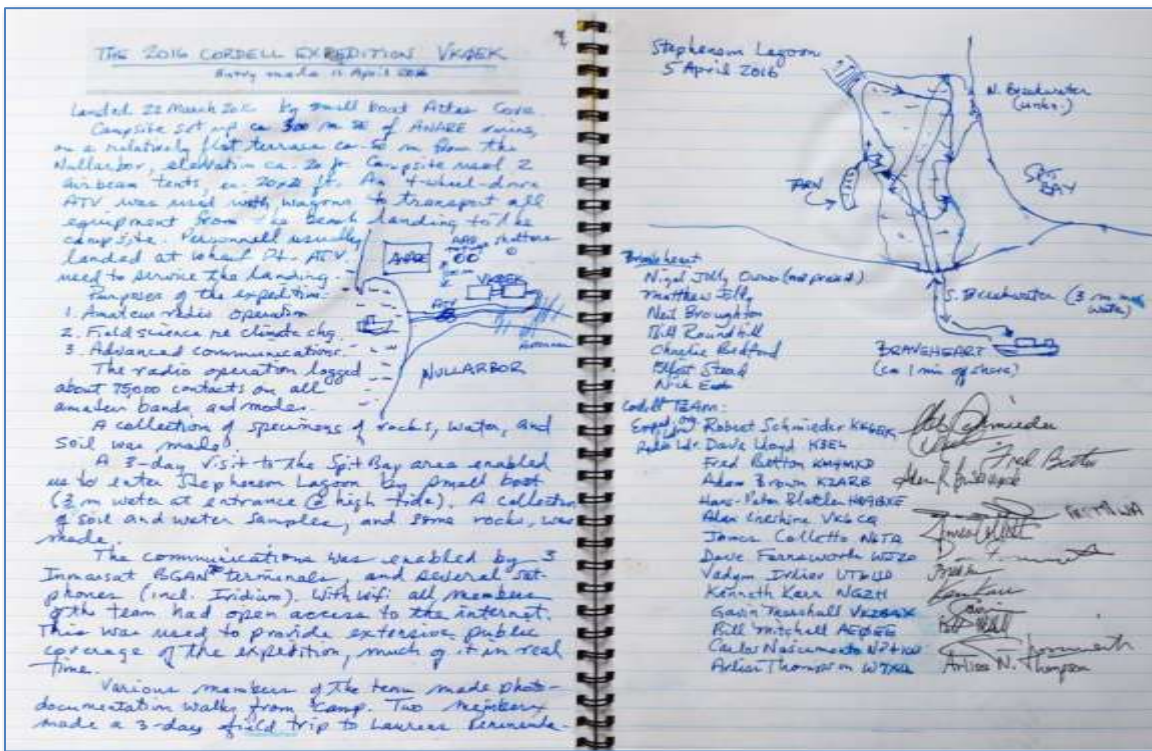 THE 2016 CORDELL EXPEDITION VKØEK
Entry made 11 April 2016
Landed 22 March 2016 by small boat Atlas Cove.
Campsite set up ca 300 m SE of ANARE ruins,
on a relatively flat terrace ca. 50 m from the
Nullarbor, elevation ca. 20 ft. Campsite used 2
airbeam tents, ca. 20x20 ft. An 4-wheel-drive
ATV was used with wagons to transport all
equipment from the beach landing to the
campsite. Personnell usually
landed at
need to service the landing.
Purposes of the expedition:
1. Amateur radio operation
2. Field science re climate chg.
3. Advanced communications.
The radio operation logged
about 75,000 contacts on all
amateur bands and modes.
A collection of specimens of rocks, water, and
soil was made.
A 3-day visit to the Spit Bay area enabled
us to enter Stephenson Lagoon by small boat
(3 m water at entrance @ high tide). A collection
of soil and water samples, and some rocks, was
made.
The communications was enabled by 3
Inmarsat BGAN terminals, and several sat-
phones (incl. Iridium). With wifi all members
of the team had open access to the internet.
This was used to provide extensive public
coverage of the expedition, much of it in real
time.
Various members of the team made photo-
documentation walks from camp. Two members
made a 3-day field trip to Laurens
ANARE
shelters
VKØEK
ATV
NULLARBOR
Stephenson Lagoon
5 April 2016
N. Breakwater
TARN
SPIT
BAY
S. Breakwater (3 m
water)
BRAVEHEART
Braveheart
Nigel Jolly Owner (not present)
Matthew Jolly
Neil Broughton
Bill Roundhill
Charlie Bedford
Nick
Cordell TEAM:
Robert Schmieder KK6EK
Radio Ldr. Dave Lloyd K3EL
Fred Belton KM4MXD
Adam Brown K2ARB
Hans-Peter Blattler HB9BXE
Alan Cheshire VK6CQ
James Colletto N6TA
Dave Farnsworth WJ2O
Vadym Ivliev UT6UD
Kenneth Karr NG2H
Gavin Marshall VK2BAX
Bill Mitchell AEØEE
Carlos Nascimento NP4IW
Arliss Thompson W7XU
Fred Belton
Arliss N. Thompson